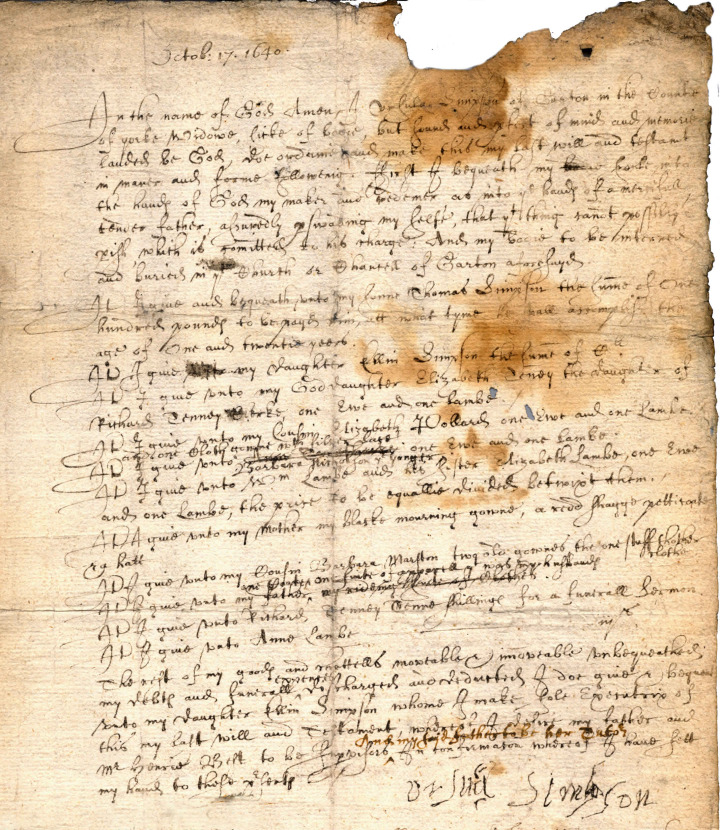 Octob: 17. 1640.
In the name of God Amen, I Ursula Simpson of Garton in the Countie
of yorke Widowe, sicke of bodie, but sound and perfect of mind and memorie
lauded be God, doe ordaine and make this my last will and testamt
in maner and forme following. First I bequeath my soule into
the hands of God my maker and redeemer as into ye hands of a mercifull
tender father, assuredly pswading my selfe, that nothing cannot possibly
pish which is comitted to his charge. And my bodie to be interred
and buried in ye Church or Chancell of Garton aforesayd.
It I give and bequeath unto my sonne Thomas Simpson the sume of One
hundred pounds to be payd him, att what tyme he shall accomplish the
age of One and twentie years.
It I give unto my daughter Ellin Simpson the sume of
It I give unto my God daughter Elizabeth Tenney the daughter of
Richard Tenney Clerke, one Ewe and one Lambe.
It I give unto my Cousin Elizabeth Pollard one Ewe and one Lambe.
It I give unto Barbara one Ewe and one Lambe.
It I give unto Wm Lambe and his Sister Elizabeth Lambe, one Ewe
and one Lambe, the price to be equallie divided betwixt them.
It I give unto my Mother my blacke mourning gowne, a redd shagge petticoate
& a hatt
It I give unto my Cousin Barbara Marston two old gownes the one stuff thother
clothe
one suite of apparell yt was my husbands
It I give unto my father
It I give unto Richard Tenney Tenne shillings for a funerall Sermon
It I give unto Anne Lambe
The rest of my goods and cattells moveable & imoveable unbequeathed,
my debts and funerall expences discharged and deducted I doe give & bequeath
unto my daughter Ellin Simpson whome I make Sole Executrix of
this my last will and Testament whereof I desire my father and
and my said father to take her Tuition
Mr Henrie Best to be supvisors In confirmation whereof I have sett
my hand to these psents
Ursula Simpson